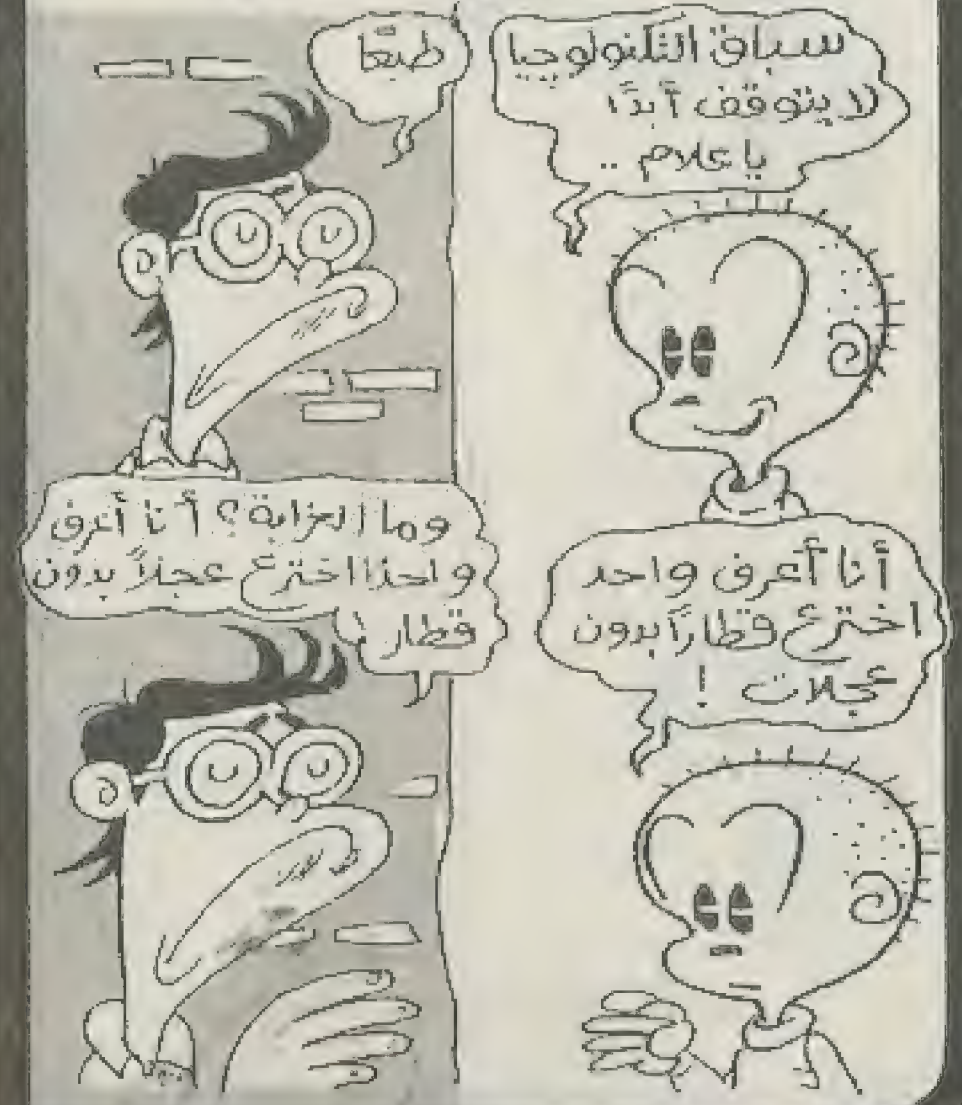 سباق التكنولوجيا
لا يتوقف أبدًا
يا علام ..
طبعًا
أنا أعرف واحد
اخترع قطارًا بدون
عجلات !
وما الغرابة ؟ أنا أعرف
واحدًا اخترع عجلاً بدون
قطار !